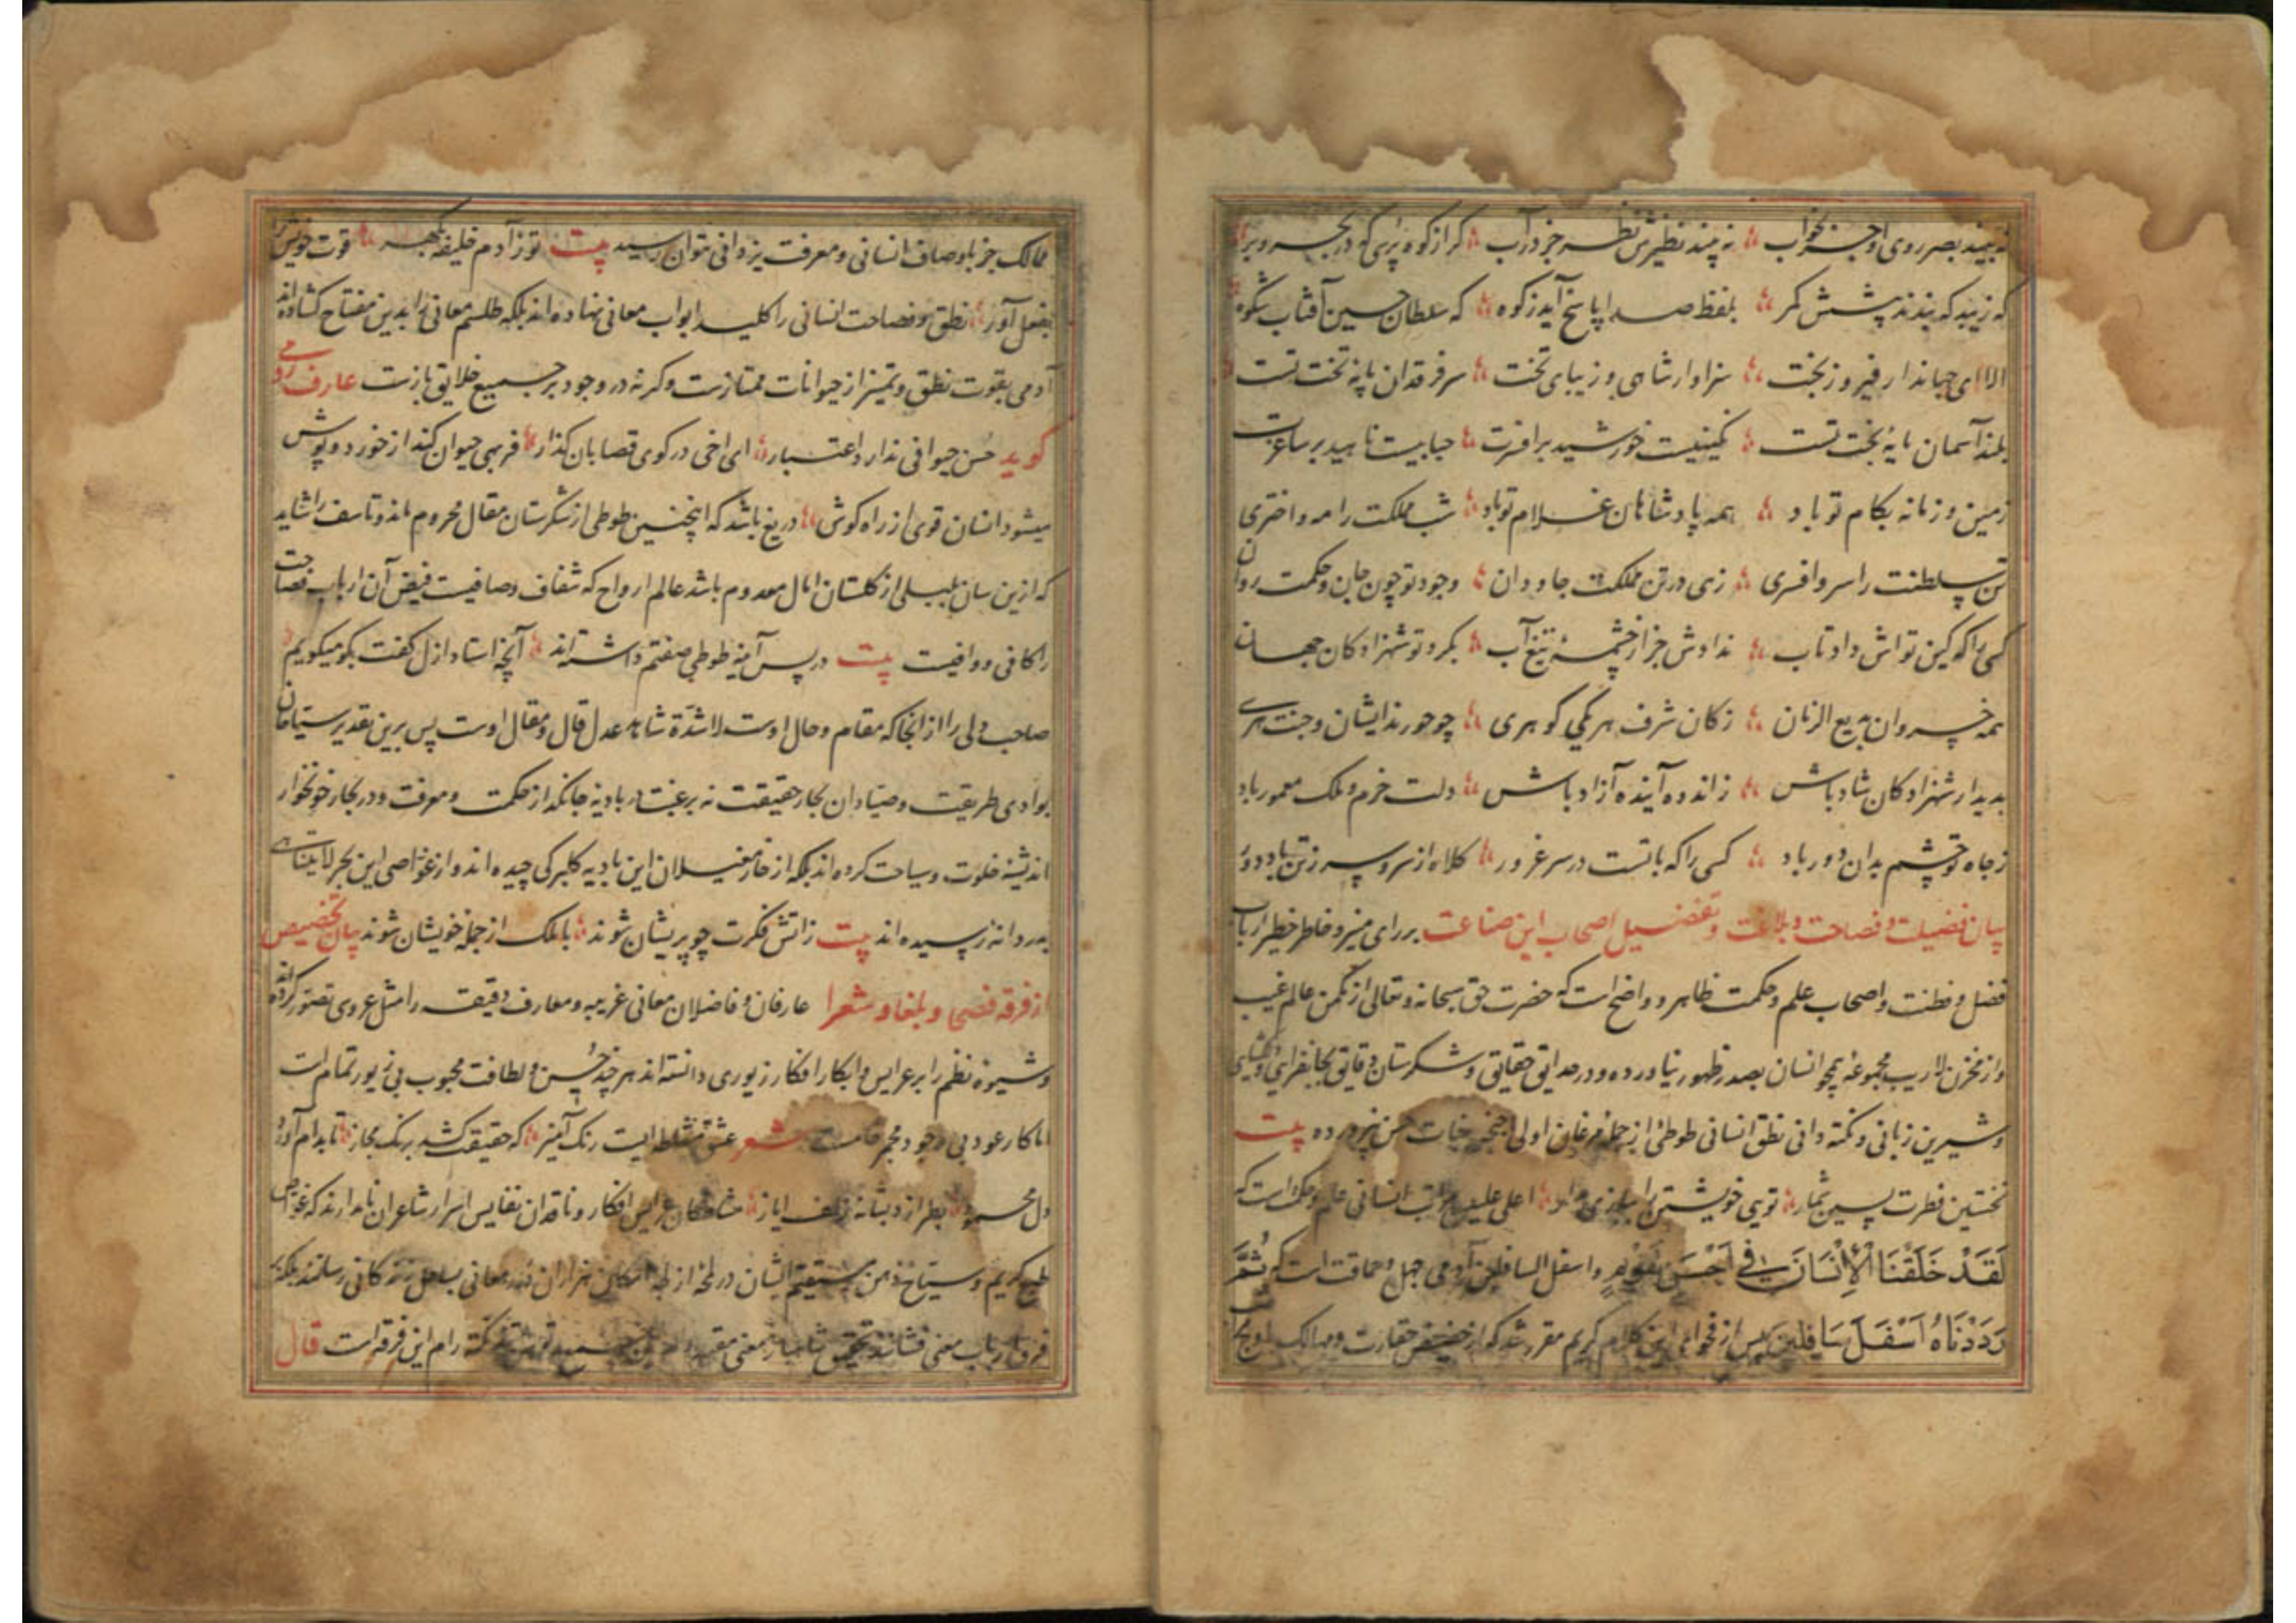 نه بیند بصر روی او جز بخواب نه بیند نظیرش نظر جز در آب گر از کوه پرسی که در بحر و بر
که زیبد که بندند پیشش کمر بلفظ صدا پاسخ آید ز کوه که سلطان حسین آفتاب شکوه
الا ای جهاندار فیروز بخت سزاوار شاهی و زیبای تخت سر فرقدان پایه تخت تست
بلند آسمان پایهٔ بخت تست نگینیست خورشید بر افسرت حبابیست ناهید بر ساغرت
زمین و زمانه بکام تو باد همه پادشاهان غلام تو باد شب مملکت را مه و اختری
تن سلطنت را سر و افسری زهی در تن مملکت جاودان وجود تو چون جان و حکمت روان
کسی را که کین تواش داد تاب ندادش جز از چشمهٔ تیغ آب بگرد تو شهزادکان جهان
همه خسروان بدیع الزمان ز کان شرف هر یکی گوهری چو حورند ایشان و جنت هری
بدیدار شهزادکان شاد باش ز انده آینده آزاد باش دلت خرم و ملک معمور باد
ز جاه تو چشم بدان دور باد کسی را که با تست در سر غرور کلاه از سر و سر ز تن باد دور
بیان فضیلت و فصاحت و بلاغت و تفضیل اصحاب این صناعت بر رای منیر و خاطر خطیر ارباب
فضل و فطنت و اصحاب علم و حکمت ظاهر و واضح است که حضرت حق سبحانه و تعالی از مکمن عالم غیب
و از مخزن لاریب مجموعهٔ همچو انسان بصدر ظهور نیاورده و در حدایق حقایق و شکرستان دقایق بجانفزایی و دلگشایی
و شیرین زبانی و نکته دانی نطق انسانی طوطئ از جمله مرغان اولی اجنحه حسن نپرورده بیت
نخستین فطرت پسین شمار تویی خویشتن را ببازی مدار اعلی علیین مراتب انسانی علم و حکمت است که
لَقَدْ خَلَقْنَا الْاِنْسَانَ فِی اَحْسَنِ تَقْوِیمٍ و اسفل السافلین آدمی جهل و حماقت است که ثُمَّ
رَدَدْنَاهُ اَسْفَلَ سَافِلِینَ پس از فحوای این کلام کریم مقرر شد که از حضیض حقارت و مسالک باوج
ممالک جز باوصاف انسانی و معرفت یزدانی نتوان رسید بیت تو ز آدم خلیفه بگهر قوت خویش را
بفعل آور نطق و فصاحت انسانی را کلید ابواب معانی نهاده اند بلکه طلسم معانی را بدین مفتاح کشاده اند
آدمی بقوت نطق و تمیز از حیوانات ممتازست و کرنه در وجود بر جمیع خلایق بازست عارف رومی
گوید حسن حیوانی ندارد اعتبار ای اخی در کوی قصابان گذار فربهی حیوان کند از خورد و نوش
میشود انسان قوی از راه گوش دریغ باشد که اینچنین طوطی از شکرستان مقال محروم ماند و تاسف را شاید
که ازین سان بلبلی از گلستان معدوم باشد عالم ارواح که شفاف و صافیست فیض آن ارباب فصاحت
را کافی و وافیست بیت در پس آینه طوطی صفتم داشته اند آنچه استاد ازل گفت بگو میگویم
صاحب دلی را از آنجا که مقام و حال اوست شاهد عدل قال و مقال اوست پس برین تقدیر سیاحان
بوادی طریقت و صیادان بحار حقیقت نه برغبت در بادیه جانگداز حکمت و معرفت و در بحار خونخوار
اندیشه خلوت و سیاحت کرده اند بلکه از خار مغیلان این بادیه گلبرگی چیده اند و از غواصی این بحر لایتناهی
بدردانه رسیده اند بیت ز آتش فکرت چو پریشان شوند با ملک از جمله خویشان شوند بیان تخصیص
از فرقه فصحا و بلغا و شعرا عارفان و فاضلان معانی غریبه و معارف دقیقه را مثل عروسی تصور کرده اند
و شیوه نظم را بر عرایس و ابکار افکار زیوری دانسته اند هر چند حسن و لطافت محبوب بی زیور تمام است
اما کار عود بی وجود مجمر خامست شعر عشق مشاطه ایست رنگ آمیز که حقیقت کند برنگ مجاز تا بدام آورد
دل محمود بطرازد بشانه زلف ایاز مشاطگان عرایس افکار و ناقدان نفایس اسرار شاعران نامدارند که غواص
طبع کریم و سیاح ذهن مستقیم ایشان در لحظه از لجه هزاران معانی بساحل زندگانی رسانند بلکه بر
فرق ارباب معنی فشانند این فرقه است قال